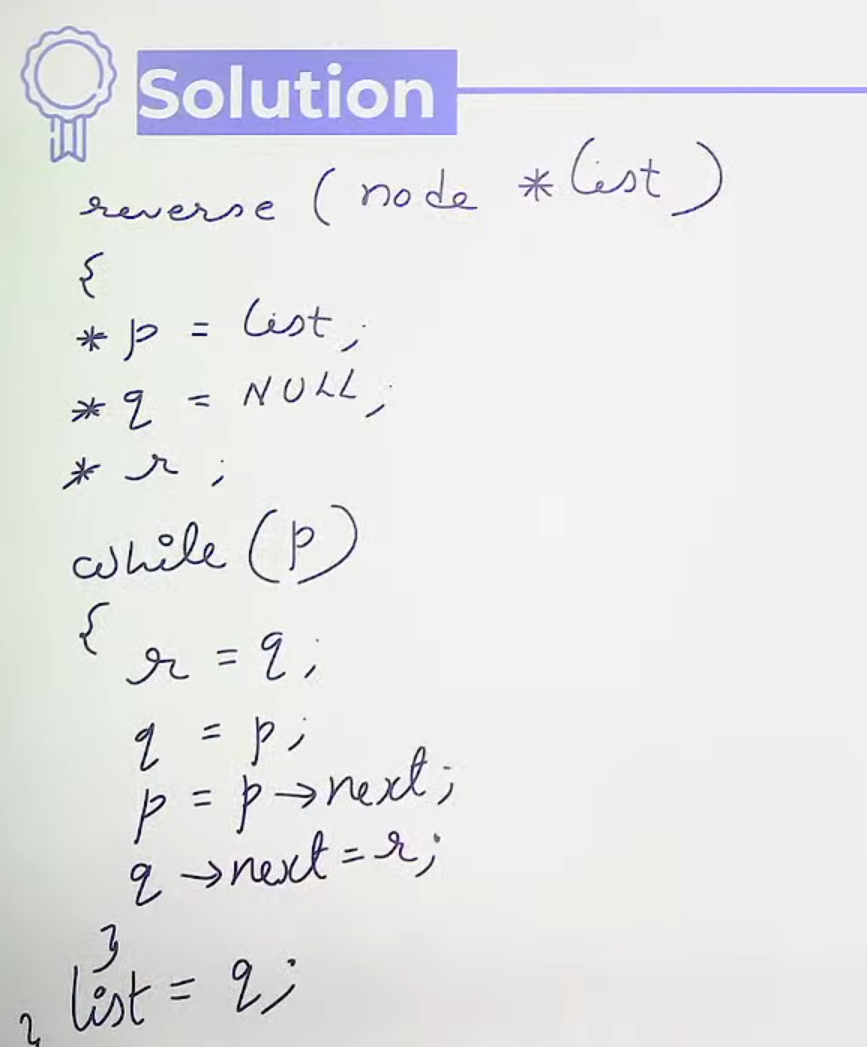 Solution
reverse ( node * list )
{
* p = list ;
* q = NULL ;
* r ;
while (p)
{
r = q ;
q = p ;
p = p → next ;
q → next = r ;
}
list = q ;
}